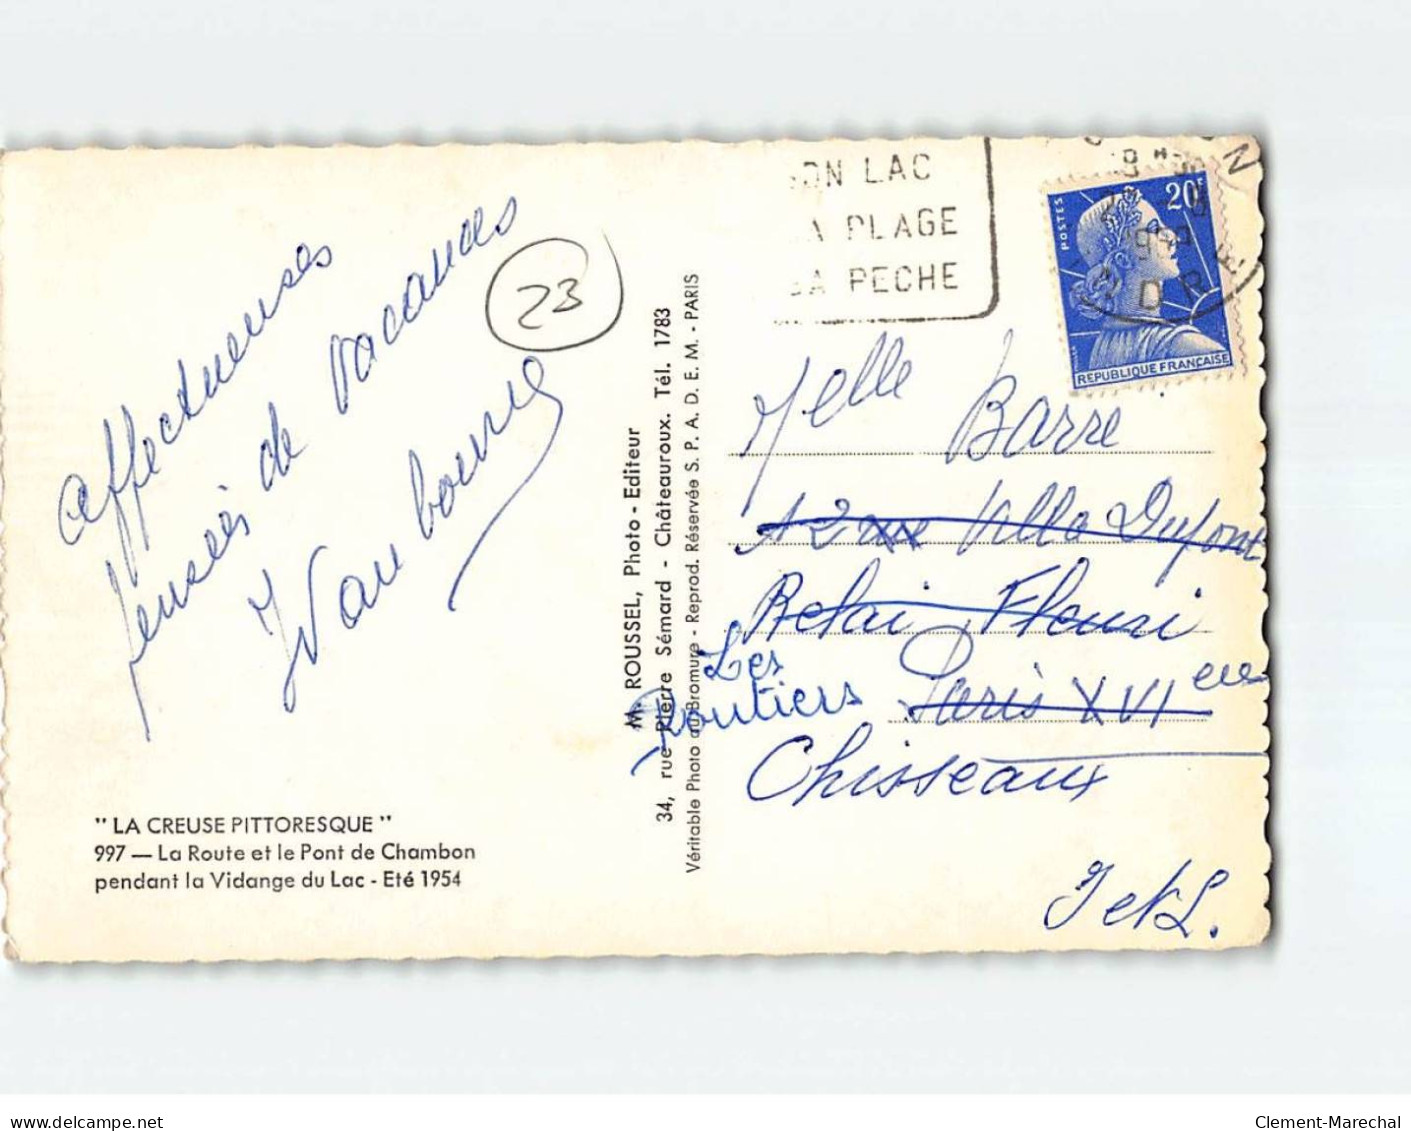 Affectueuses
pensées de vacances
23
" LA CREUSE PITTORESQUE "
997 — La Route et le Pont de Chambon
pendant la Vidange du Lac - Eté 1954
M. ROUSSEL, Photo - Editeur
34, rue Pierre Sémard - Châteauroux. Tél. 1783
Véritable Photo au Bromure - Reprod. Réservée S. P. A. D. E. M. - PARIS
SON LAC
SA PLAGE
SA PECHE
POSTES
20F
REPUBLIQUE FRANÇAISE
INDRE
Melle Barre
12 Villa Dupont
Relai Fleuri
Les
Routiers
Paris XVIeme
Chisseaux
I et L.
delcampe.net
Clement-Marechal